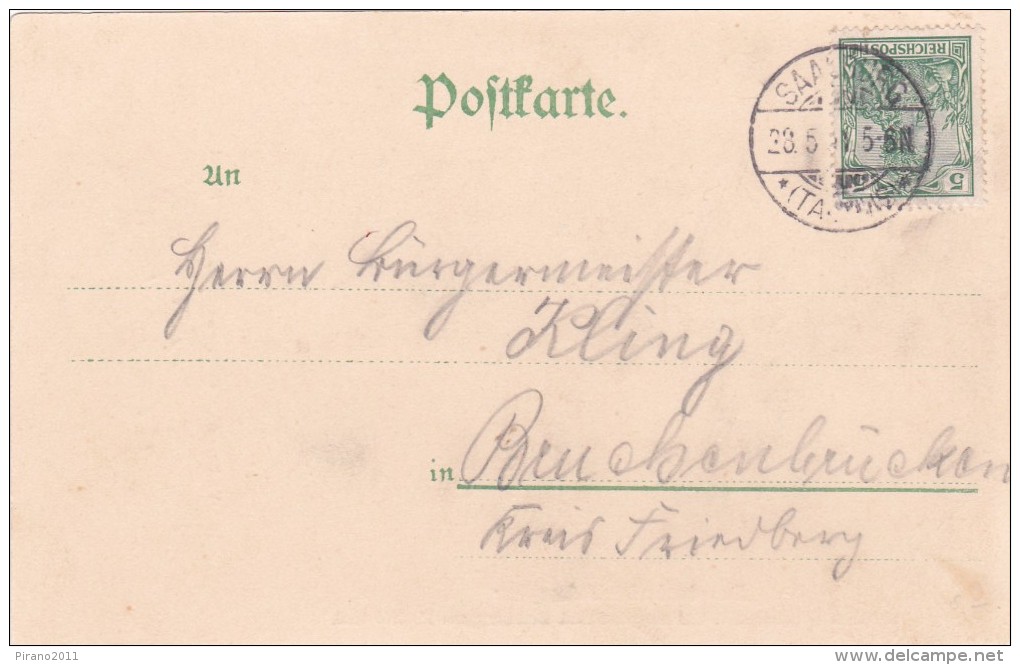 Postkarte.
REICHSPOST
5
28. 5 5-6N
(TA
An
Herrn Bürgermeister
Kling
in Bruchenbrücken
Kreis Friedberg
Pirano2011
delcampe.net